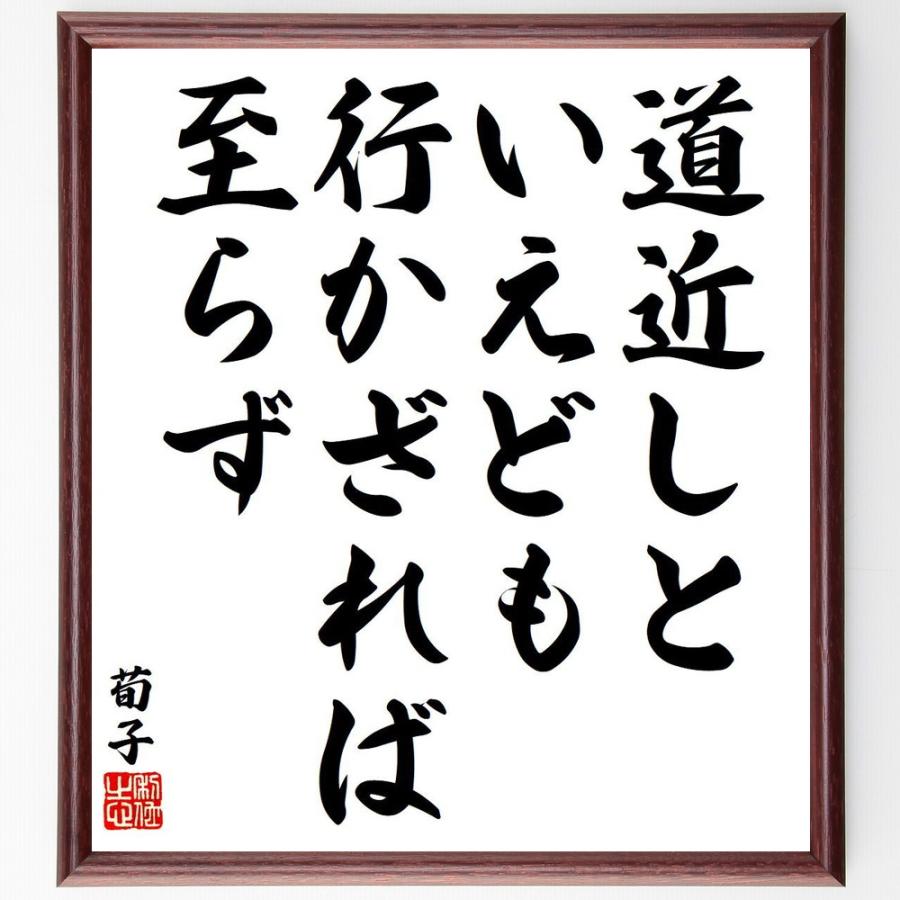 道近しと
いえども
行かざれば
至らず
荀子